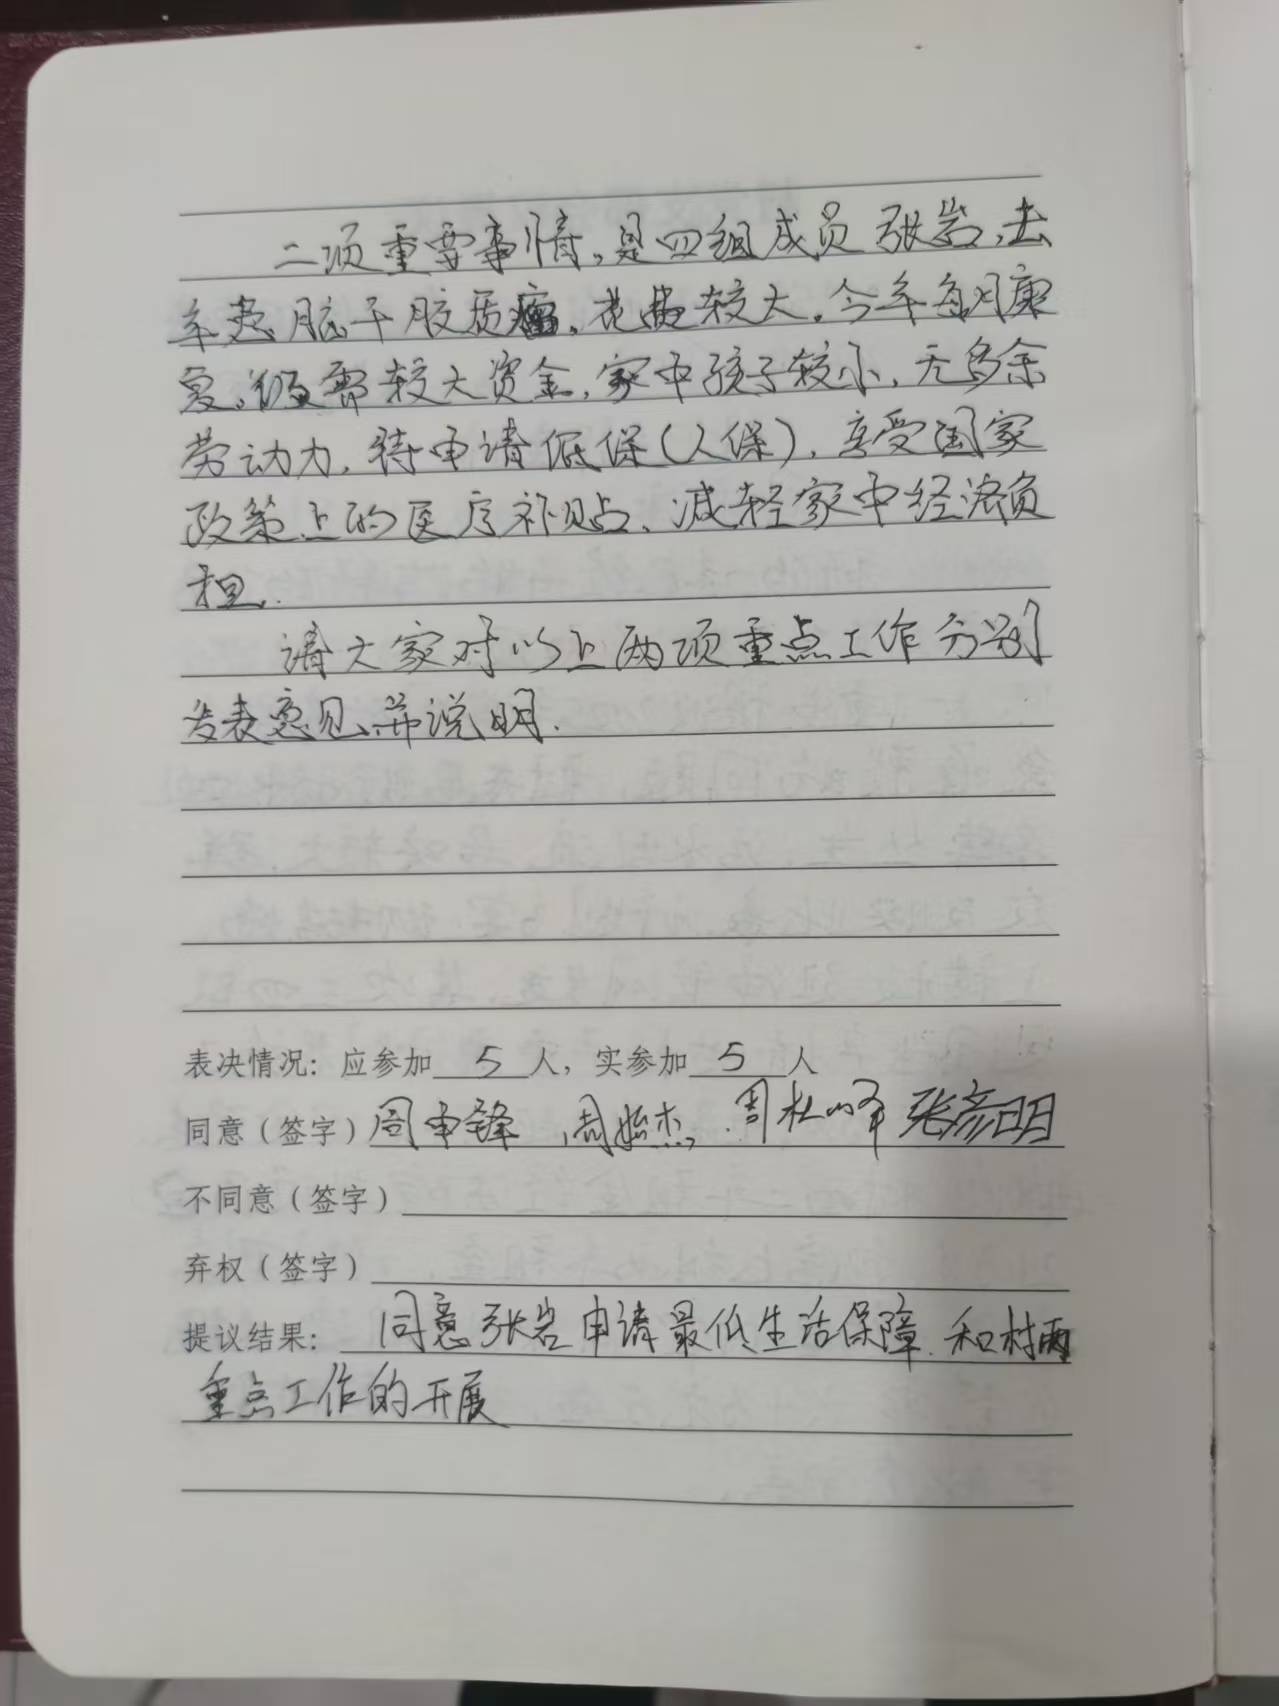 二项重要事情,是四组成员张岩,去
年患脑干胶质瘤,花费较大,今年每月康
复,须需较大资金,家中孩子较小,无多余
劳动力,特申请低保(人保),享受国家
政策上的医疗补贴,减轻家中经济负
担.
请大家对以上两项重点工作分别
发表意见,并说明.
表决情况:应参加 5 人,实参加 5 人
同意(签字) 周申锋 周 杰 周松峰 张彦明
不同意(签字)
弃权(签字)
提议结果: 同意张岩申请最低生活保障.和村两
重点工作的开展